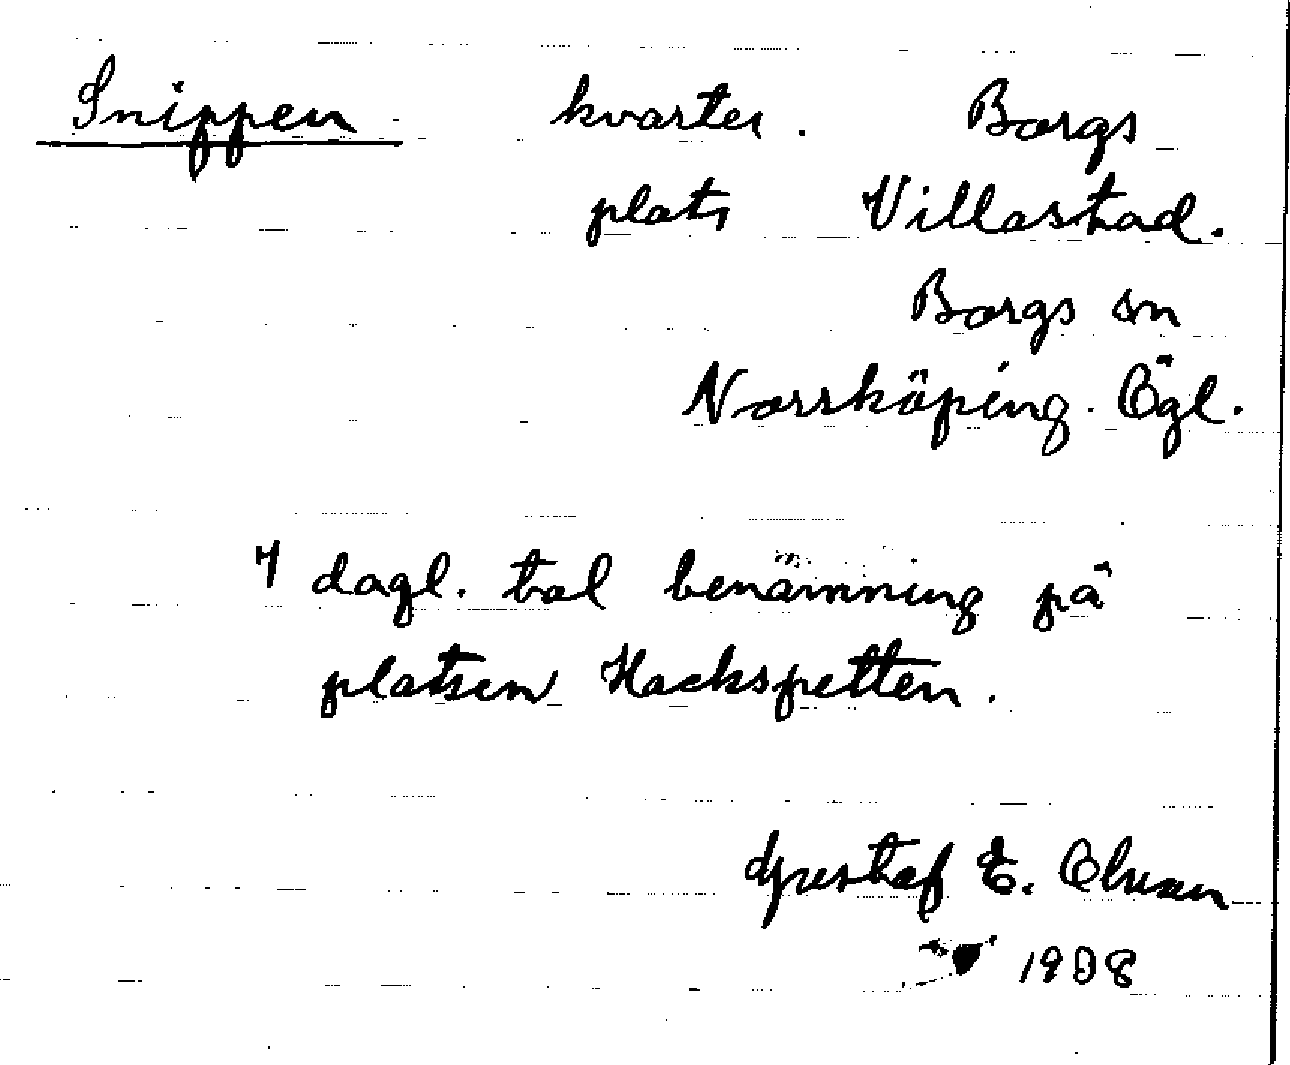 Snippen kvarter. Borgs
plats Villastad.
Borgs sn
Norrköping. Ögl.
I dagl. tal benämning på
platsen Hackspetten.
Gustaf E. Olsson
1908